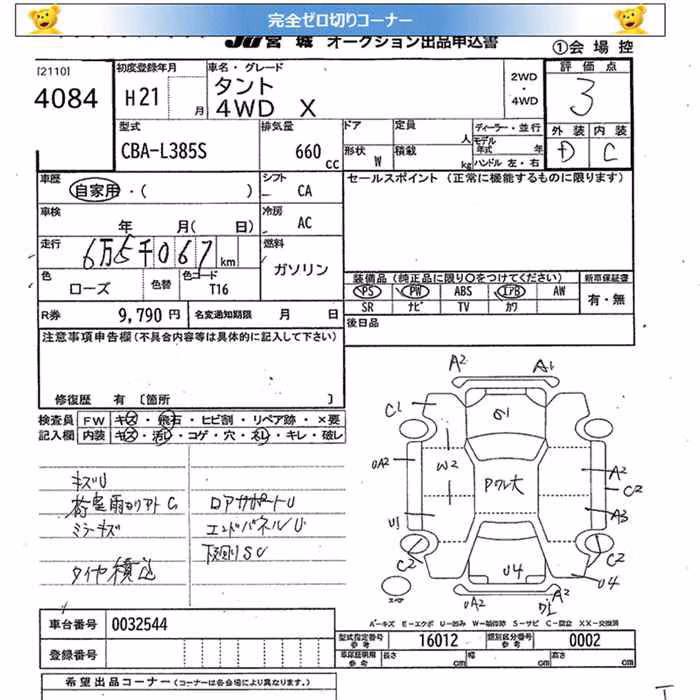 完全ゼロ切りコーナー
JU宮城 オークション出品申込書
①会場控
[2110]
4084
初度登録年月
H21 月
車名・グレード
タント
4WD X
2WD
・
4WD
評価点
3
型式
CBA-L385S
排気量
660 cc
ドア
定員 人
形状 W
積載 kg
ディーラー・並行
モデル年式 年
ハンドル 左・右
外装 内装
D C
車歴
自家用・( )
シフト
CA
セールスポイント (正常に機能するものに限ります)
車検
年 月( 日)
冷房
AC
走行
6万5千067 km
燃料
ガソリン
色
ローズ
色替
色コード
T16
装備品(純正品に限り○をつけてください)
PS PW ABS エアB AW
SR ナビ TV カワ
新車保証書
有・無
R券 9,790 円
名変通知期限 月 日
後日品
注意事項申告欄(不具合内容等は具体的に記入して下さい)
修復歴 有〔箇所 〕
検査員記入欄
FW キズ・飛石・ヒビ割・リペア跡・×要
内装 キズ・汚レ・コゲ・穴・ネレ・キレ・破レ
キズU
荷室雨モリアトC
ミラーキズ
タイヤ積込
ロアサポートU
エンドパネルU
下廻りSC
A2 A1
C1
G1
UA2
W2
Pワル大
A2
C2
U1
A3
C2
C2
U4
U4
UA2
A2
A-キズ E-エクボ U-凹み W-補修跡 S-サビ C-腐食 XX-交換済
車台番号 0032544
登録番号
型式指定番号 参考 16012
類別区分番号 参考 0002
車庫証明用 参考 長さ cm 幅 cm 高さ cm
希望出品コーナー(コーナーは各会場により異なります。)